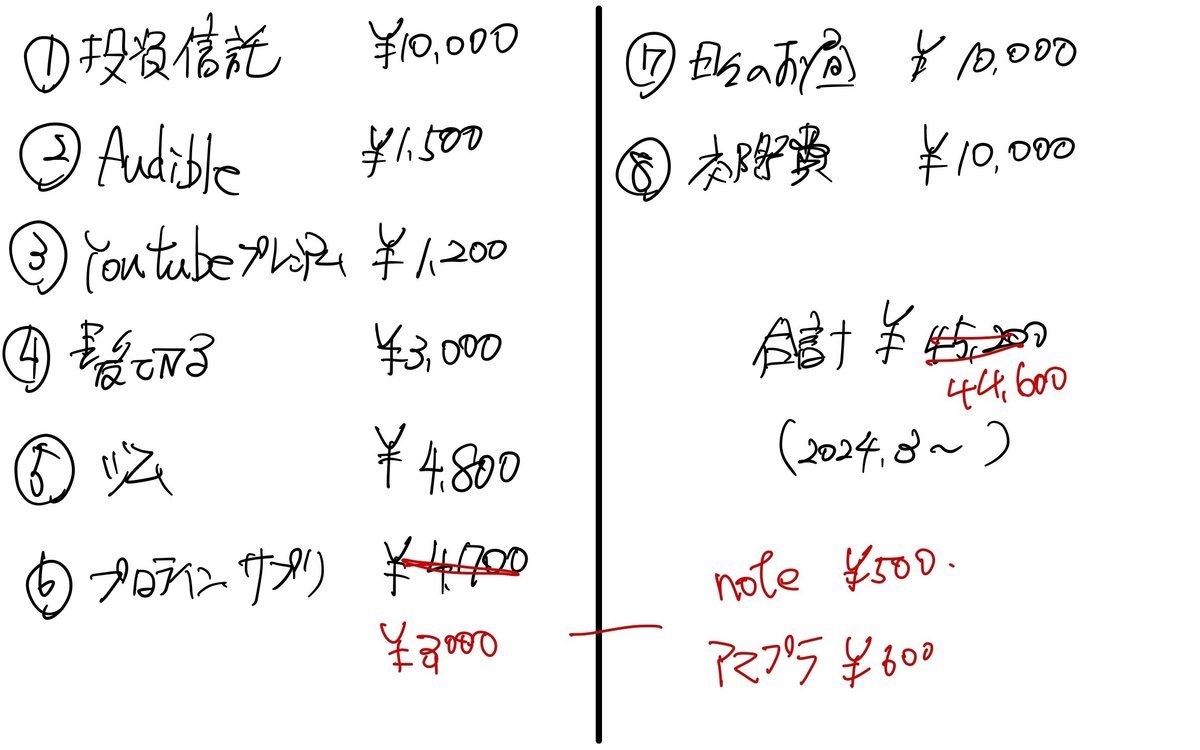 ① 投資信託 ¥10,000
② Audible ¥1,500
③ Youtubeプレミアム ¥1,200
④ ¥3,000
⑤ ジム ¥4,800
⑥ プロテイン サプリ ¥4,700
¥3,000
⑦ 日々のお昼 ¥10,000
⑧ 交際費 ¥10,000
合計 ¥45,200
44,600
(2024.3〜 )
note ¥500.
アマプラ ¥600